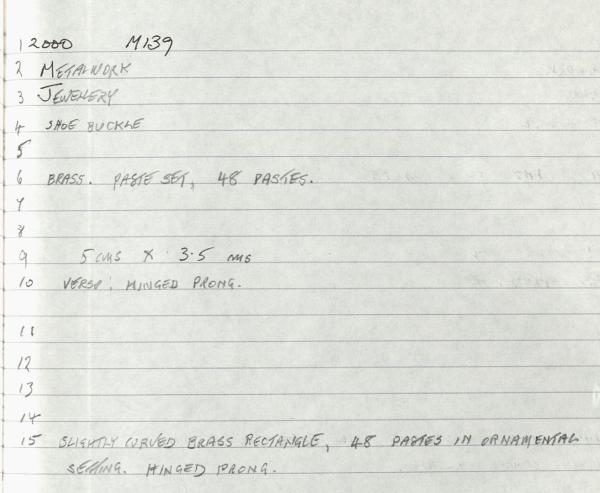 1 2000 M139
2 METALWORK
3 JEWELLERY
4 SHOE BUCKLE
5
6 BRASS. PASTE SET, 48 PASTES.
7
8
9 5 cms X 3.5 cms
10 VERSO: HINGED PRONG.
11
12
13
14
15 SLIGHTLY CURVED BRASS RECTANGLE, 48 PASTES IN ORNAMENTAL
SETTING. HINGED PRONG.